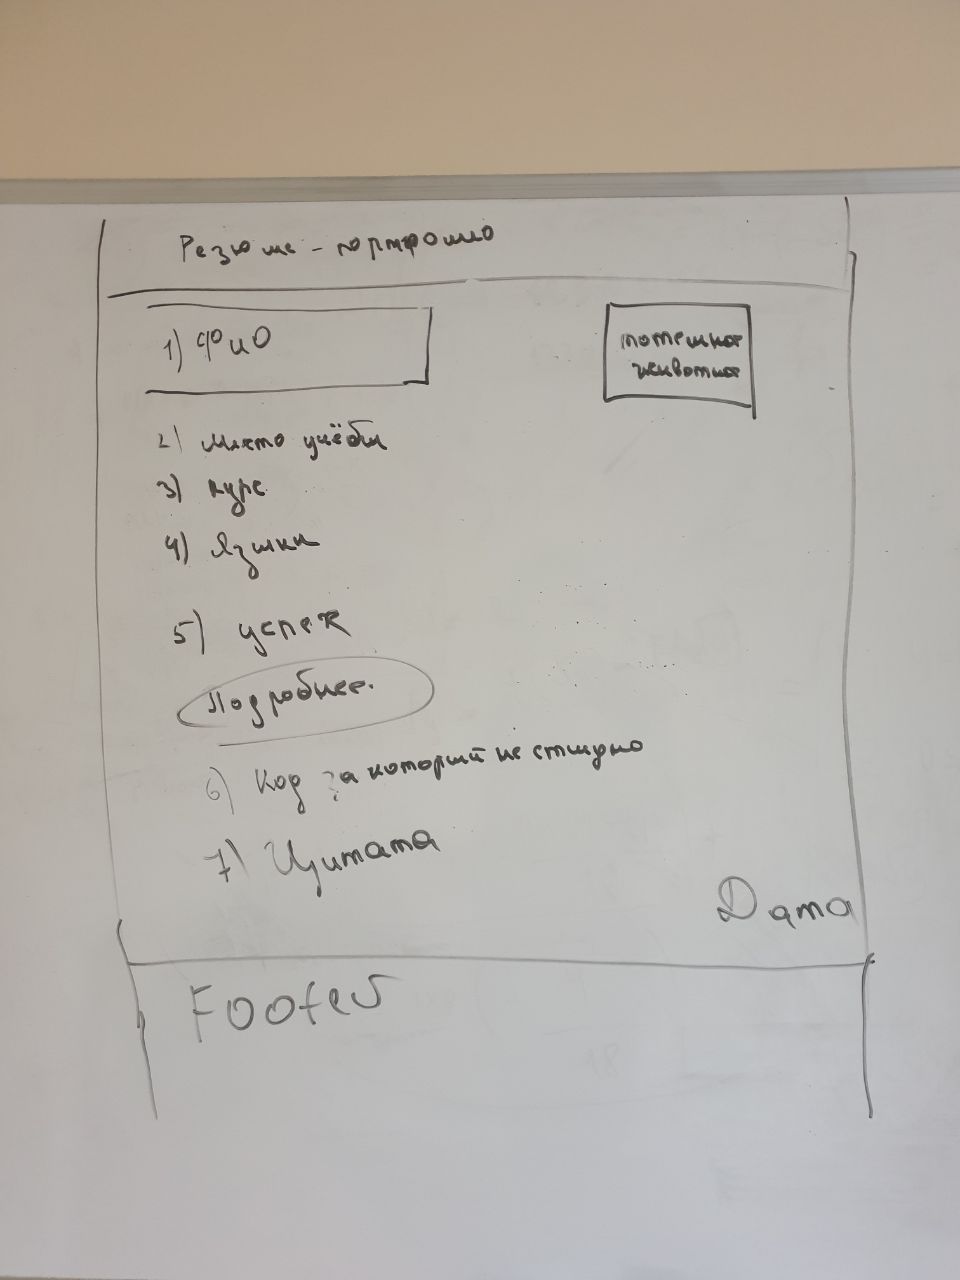 Резюме - портфолио
1) ФИО
потешное
животное
2) Место учёбы
3) курс
4) Языки
5) успех
Подробнее.
6) Код за который не стыдно
7) Цитата
Дата
Footer